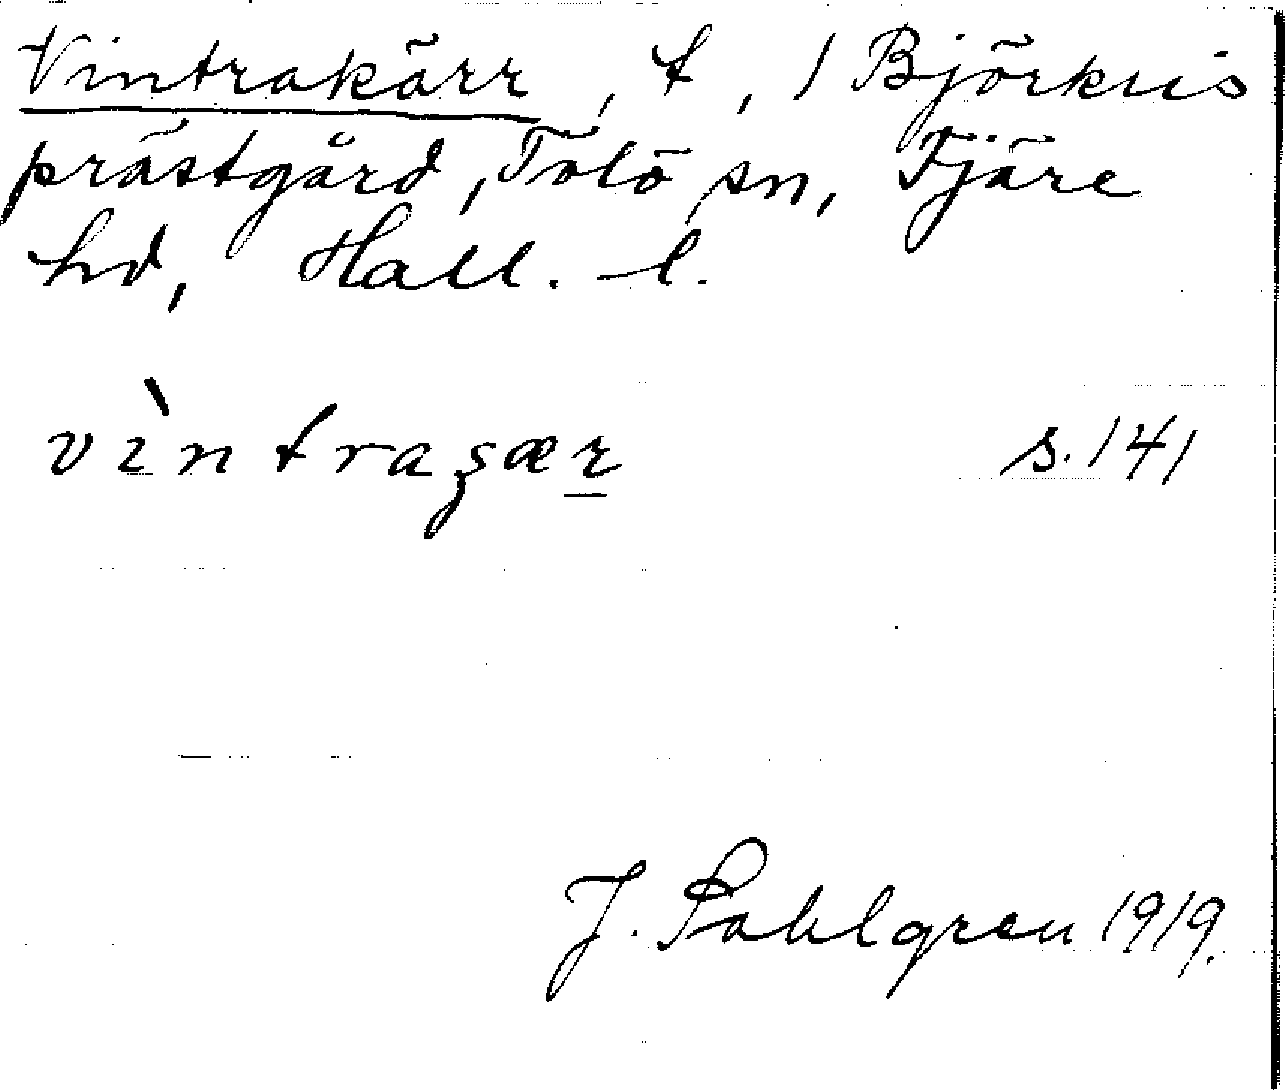 Vintrakärr, t, 1 Björkris
prästgård, Tölö sn, Fjäre
hd, Hall. l.
vìntraʂær̲ s. 141
J. Sahlgren 1919.